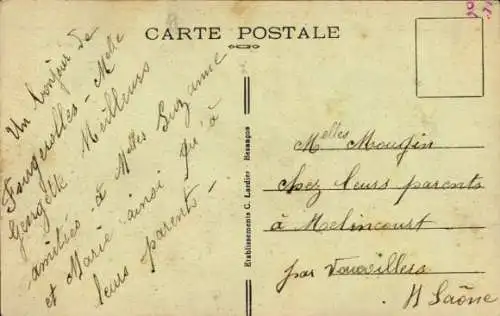 CARTE POSTALE
Un bonjour de
Fougerolles - Melle
Georgette Meilleurs
amitiés à Melles Suzanne
et Marie ainsi qu'à
leurs parents -
Etablissements C. Lardier - Besançon
Melles Mougin
chez leurs parents
à Melincourt
par Vauvillers
H Saône